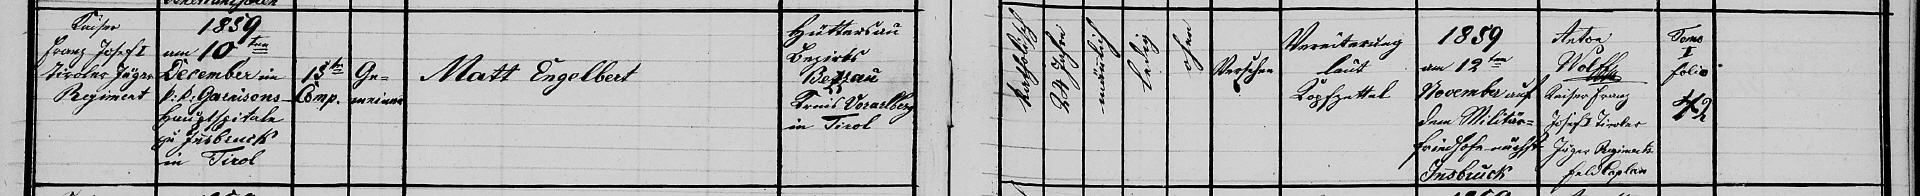 Kaiser
Franz Josef I
Tiroler Jäger
Regiment
1859
am 10ten
December im
k: k: Garnisons-
Hauptspitale
zu Insbruck
in Tirol
13te
Comp.
Ge-
meiner
Matt Engelbert
Hüttersau
Bezirks
Bezau
Kreis Vorarlberg
in Tirol
Katholisch
24 Jahre
männlich
ledig
ohne
Versehen
Vereiterung
laut
Kopfzettel
1859
am 12ten
November auf
dem Militär-
friedhofe nächst
Insbruck
Anton
Wolf
Kaiser Franz
Josef I Tiroler
Jäger Regiments
Feldkaplan
Tomo
I
folio
42